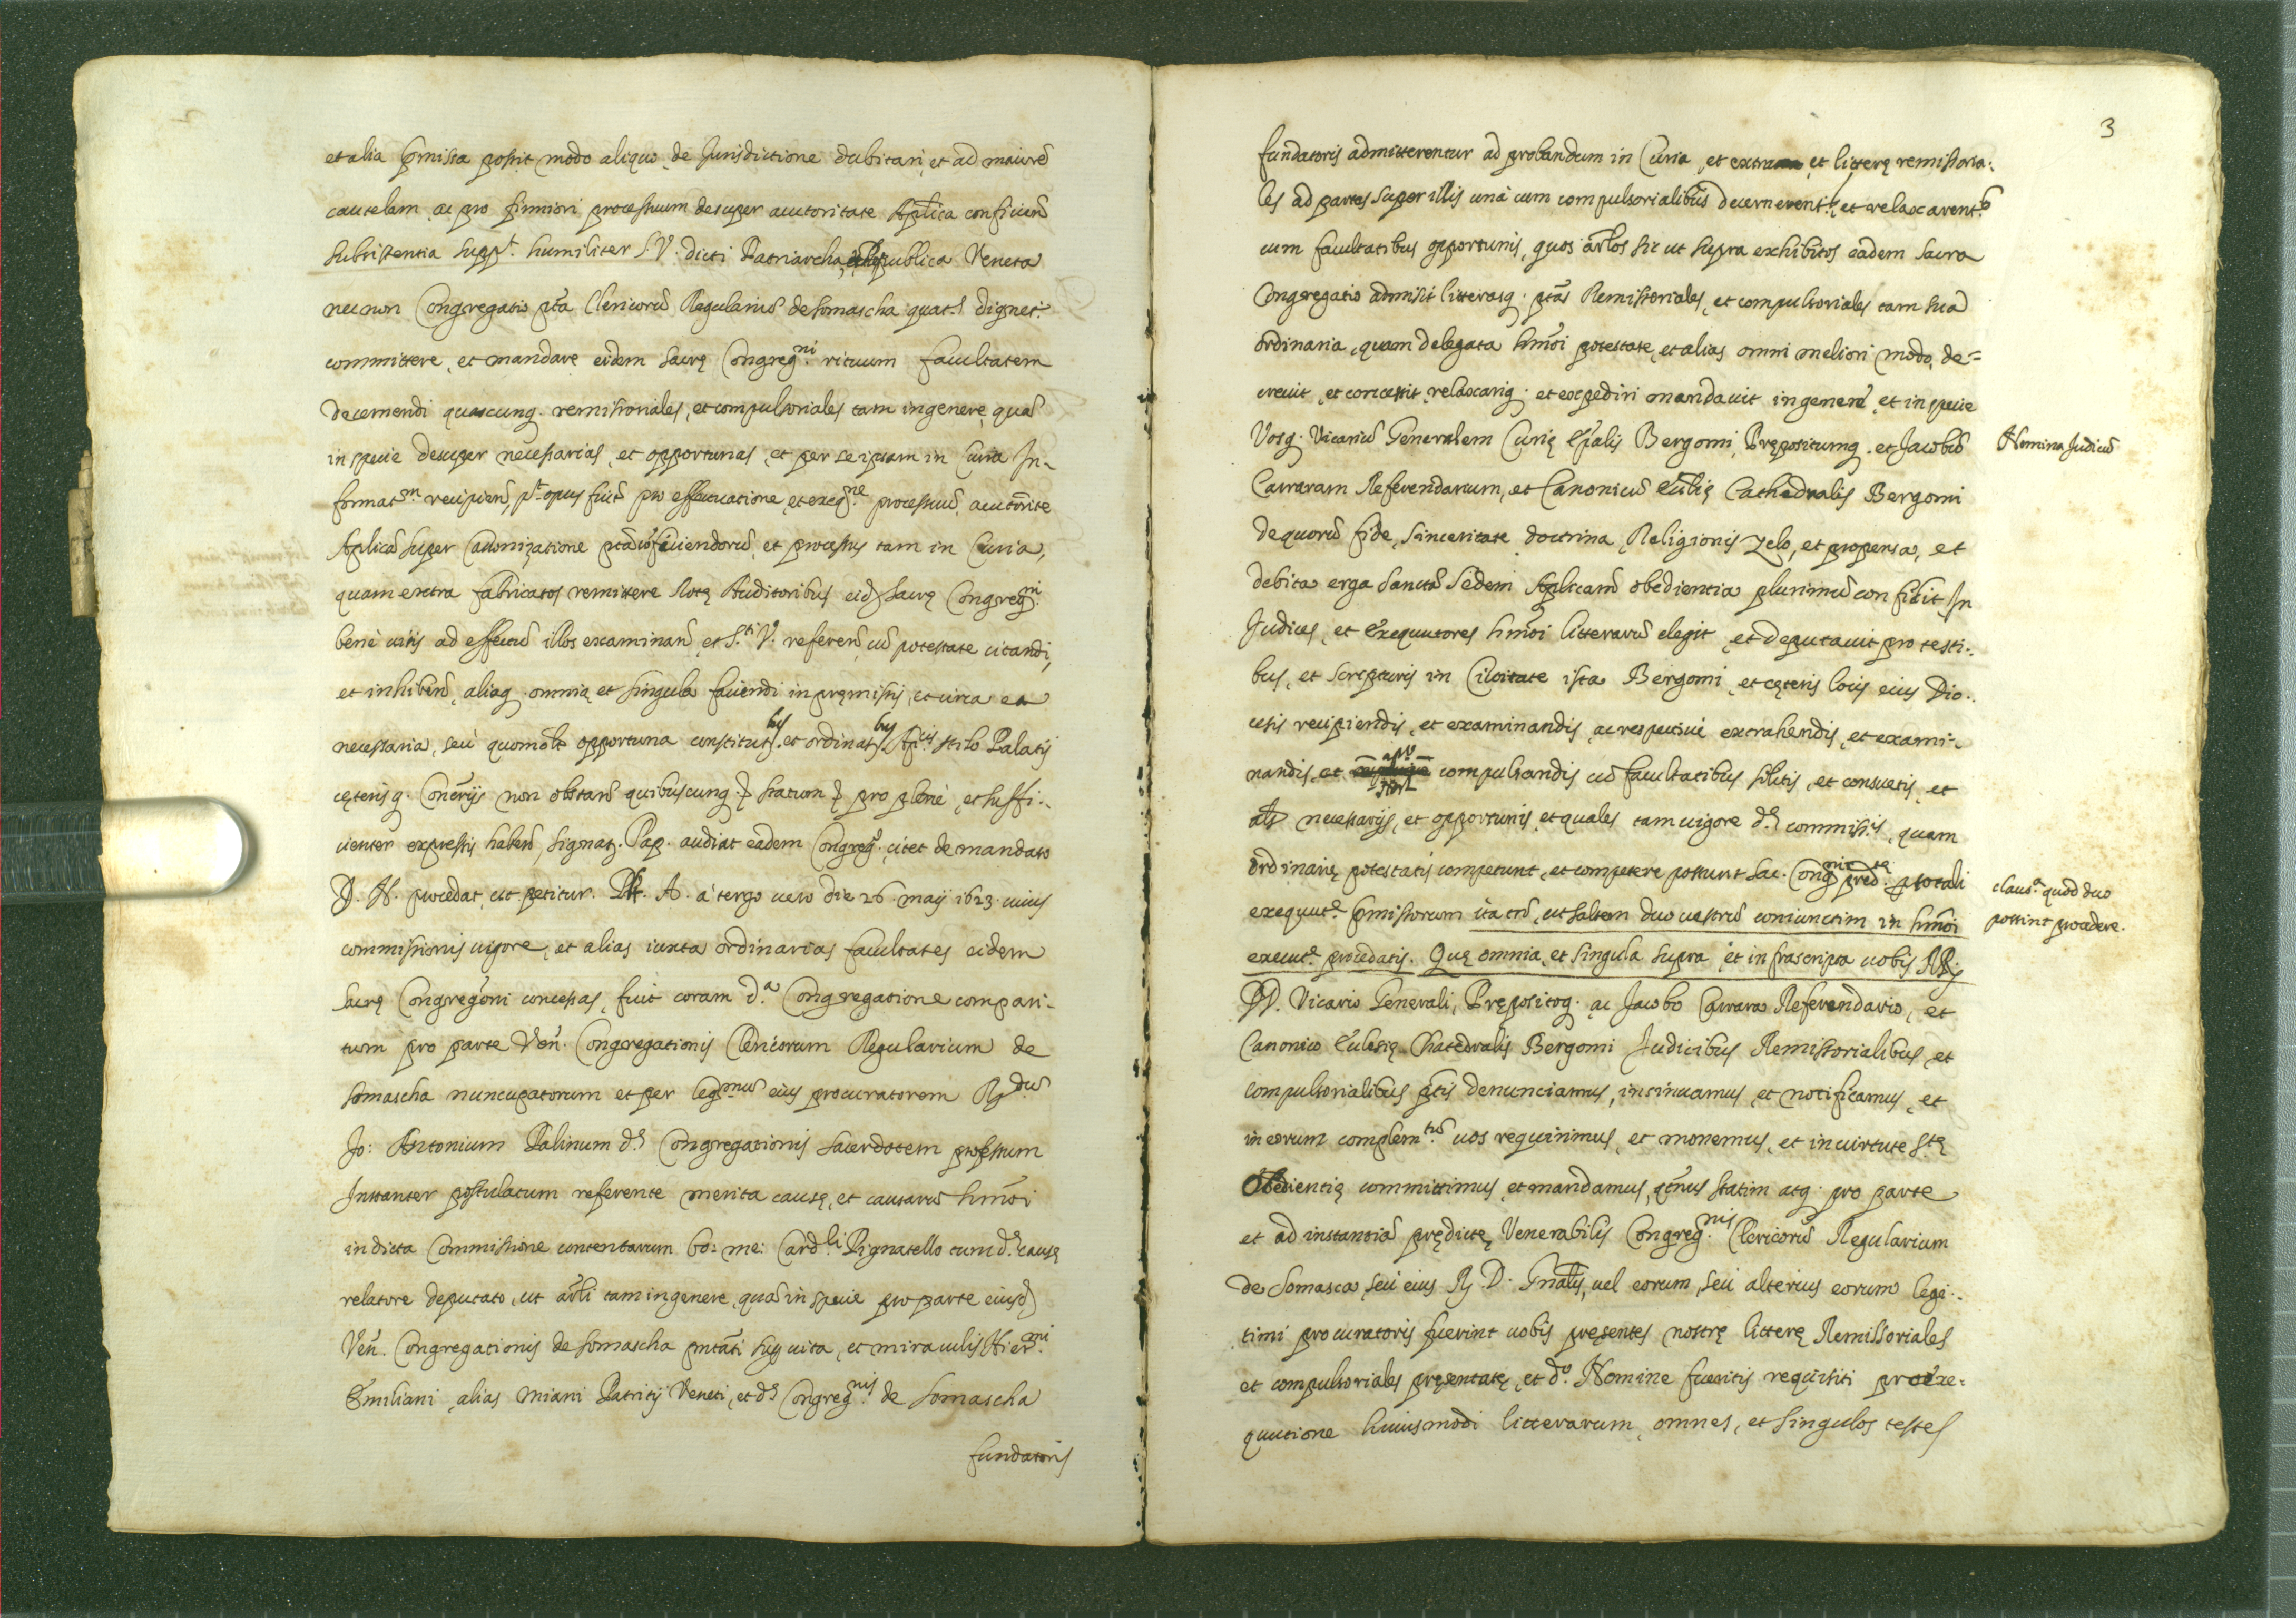 et alia p̃missa possit modo aliquo de Jurisdictione dubitari, et ad maiorē
cautelam ac pro firmiori processuum desuper auctoritate Aplica conficien̄
subsistentia supp.t humiliter S. V. dicti Patriarcha, Respublica Veneta
necnon Congregatio p̄ta Clericorū Regulariū de Somascha quat.s dignet.r
committere, et mandare eidem sacrę Congreg.ni rituum facultatem
decernendi quascunq. remissoriales, et compulsoriales tam in genere, quā
in specie desuper necessarias, et opportunas, et per se ipsam in Curia In-
format.m recipien̄, pt opus fuit pro effectuatione, et exeq.ne processuū auctorite
Aplicā super Canonizatione conficiendorū, et processus tam in Curia,
quam extra fabricatos remittere Rotę Auditoribus eid. sacrę Congreg.ni
benè visis ad effectū illos examinan̄, et S.ti V. referen̄, cū potestate citandi,
et inhiben̄, aliaq. omnia, et singula faciendi in pręmissis, et circa ea
necessaria, seù quomōlt opportuna constitut.bus et ordinat.bus Ap.cis stilo Palatij
cęterisq. Con̄rijs non obstan̄ quibuscunq. statum pro plenè, et suffi-
cienter expressis haben̄, signat. Pap. audiat eadem Congreg.o citet de mandato
D. N. procedat, ut petitur. Pt. A. à tergo uero die 26 maij 1623 cuius
commissionis uigore, et alias iuxta ordinarias facultates eidem
sacrę Congregōni concessas, fuit coram d.a Congregatione compari-
tum pro parte Ven. Congregationis Clericorum Regularium de
Somascha nuncupatorum et per leg.mum eius procuratorem R.dum
Jo: Antonium Palinum d.s Congregationis sacerdotem professum
Instanter postulatum referente merita causę, et causarū hmōi
in dicta Commissione contentarum bo: me: Card.li Pignatello tum d.s causę
relatore deputato, ut ar̄li tam in genere, quā in specie pro parte eiusd.
Ven. Congregationis de Somascha pn̄tāti sup uita, et miraculis Hier.mi
Emiliani, alias Miani Patritij Veneti, et d.s Congreg.nis de Somascha
fundatoris
3
fundatoris admitterentur ad probandum in Curia, et extra, et litterę remissoria-
les ad partes super illis unà cum compulsorialibus decernerent.r, et relaxarent.r
cum facultatibus opportunis, quos ar̄los sic ut supra exhibitos eadem sacra
Congregatio admisit litterasq. p̄tas Remissoriales, et compulsoriales tam sua
ordinaria, quam delegata hmōi potestate, et alias omni meliori modo, de=
creuit, et concessit, relaxariq. et expediri mandauit in genere, et in specie
Vosq. Vicariū Generalem Curię Ep̄alis Bergomi, Prępositumq. et Jacobū
Carraram Referendarium, et Canonicū Ecclię Cathedralis Bergomi
de quorū fide, sinceritate doctrina, Religionis zelo, et propensa, et
debita erga sanctā Sedem Aplicam obedientia plurimū confidit In
Judices, et Exequutores hmōi litterarū elegit, et deputauit pro testi-
bus, et scripturis in Ciuitate ista Bergomi, et cęteris locis eius Dio-
cesis recipiendis, et examinandis, ac respectiuè extrahendis, et exami-
nandis, et compulsandis cū facultatibus solitis, et consuetis, et
als necessarijs, et opportunis, et quales tam uigore d.s commiss.is, quam
ordinarię potestatis competunt, et competere possunt Sac. Cong.nis pred.tę p totali
exequut.e p̃missorum ita tn̄, ut saltem duo uestrū coniunctim in hmōi
execut.e procedatis. Quę omnia, et singula supra, et infrascripta uobis RR.
DD. Vicario Generali, Prępositoq. ac Jacobo Carrara Referendario, et
Canonico Eclesię Chatedralis Bergomi Judicibus Remissorialibus, et
compulsorialibus p̄tis denunciamus, insinuamus, et notificamus, et
in eorum complem.tum uos requirimus, et monemus, et in uirtute s.tę
Obedientię committimus, et mandamus, q̄tnus statim atq. pro parte
et ad instantiā prędictę Venerabilis Congreg.nis Clericorū Regularium
de Somasca, seù eius R. D. Gn̄alis, uel eorum, seù alterius eorum legi-
timi procuratoris fuerint uobis pręsentes nostrę litterę Remissoriales
et compulsoriales pręsentatę, et d.o Nomine fueritis requisiti pro exe-
quutione huiusmodi litterarum, omnes, et singulos testes
Nomina Judicū
claus.a quod duo
possint procedere.